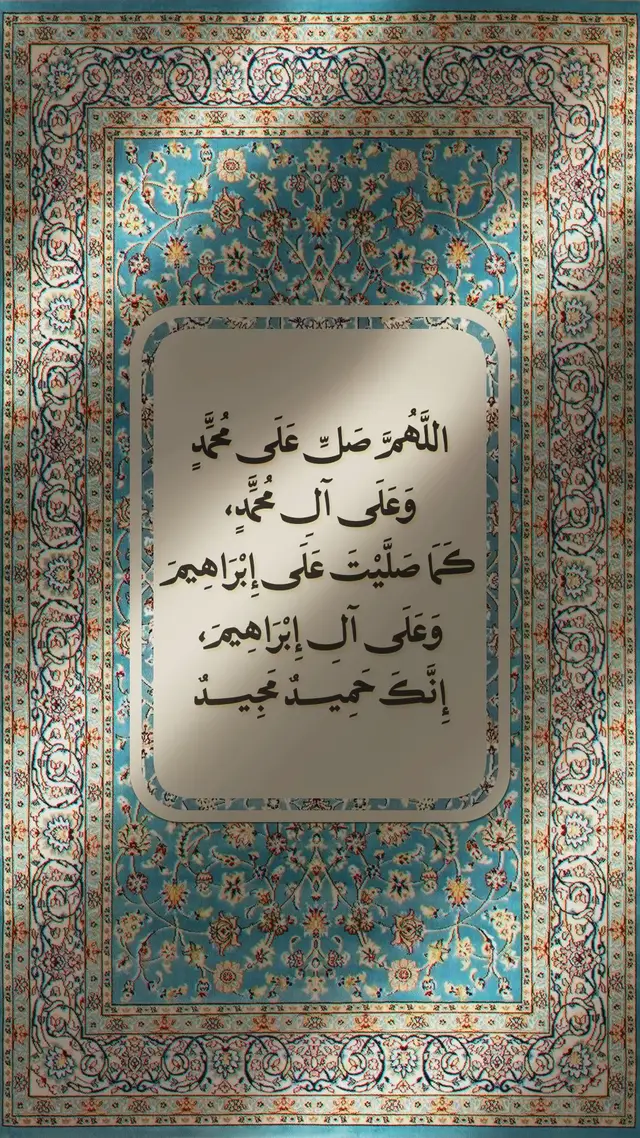 اللَّهُمَّ صَلِّ عَلَى مُحَمَّدٍ
وَعَلَى آلِ مُحَمَّدٍ،
كَمَا صَلَّيْتَ عَلَى إِبْرَاهِيمَ
وَعَلَى آلِ إِبْرَاهِيمَ،
إِنَّكَ حَمِيدٌ مَجِيدٌ